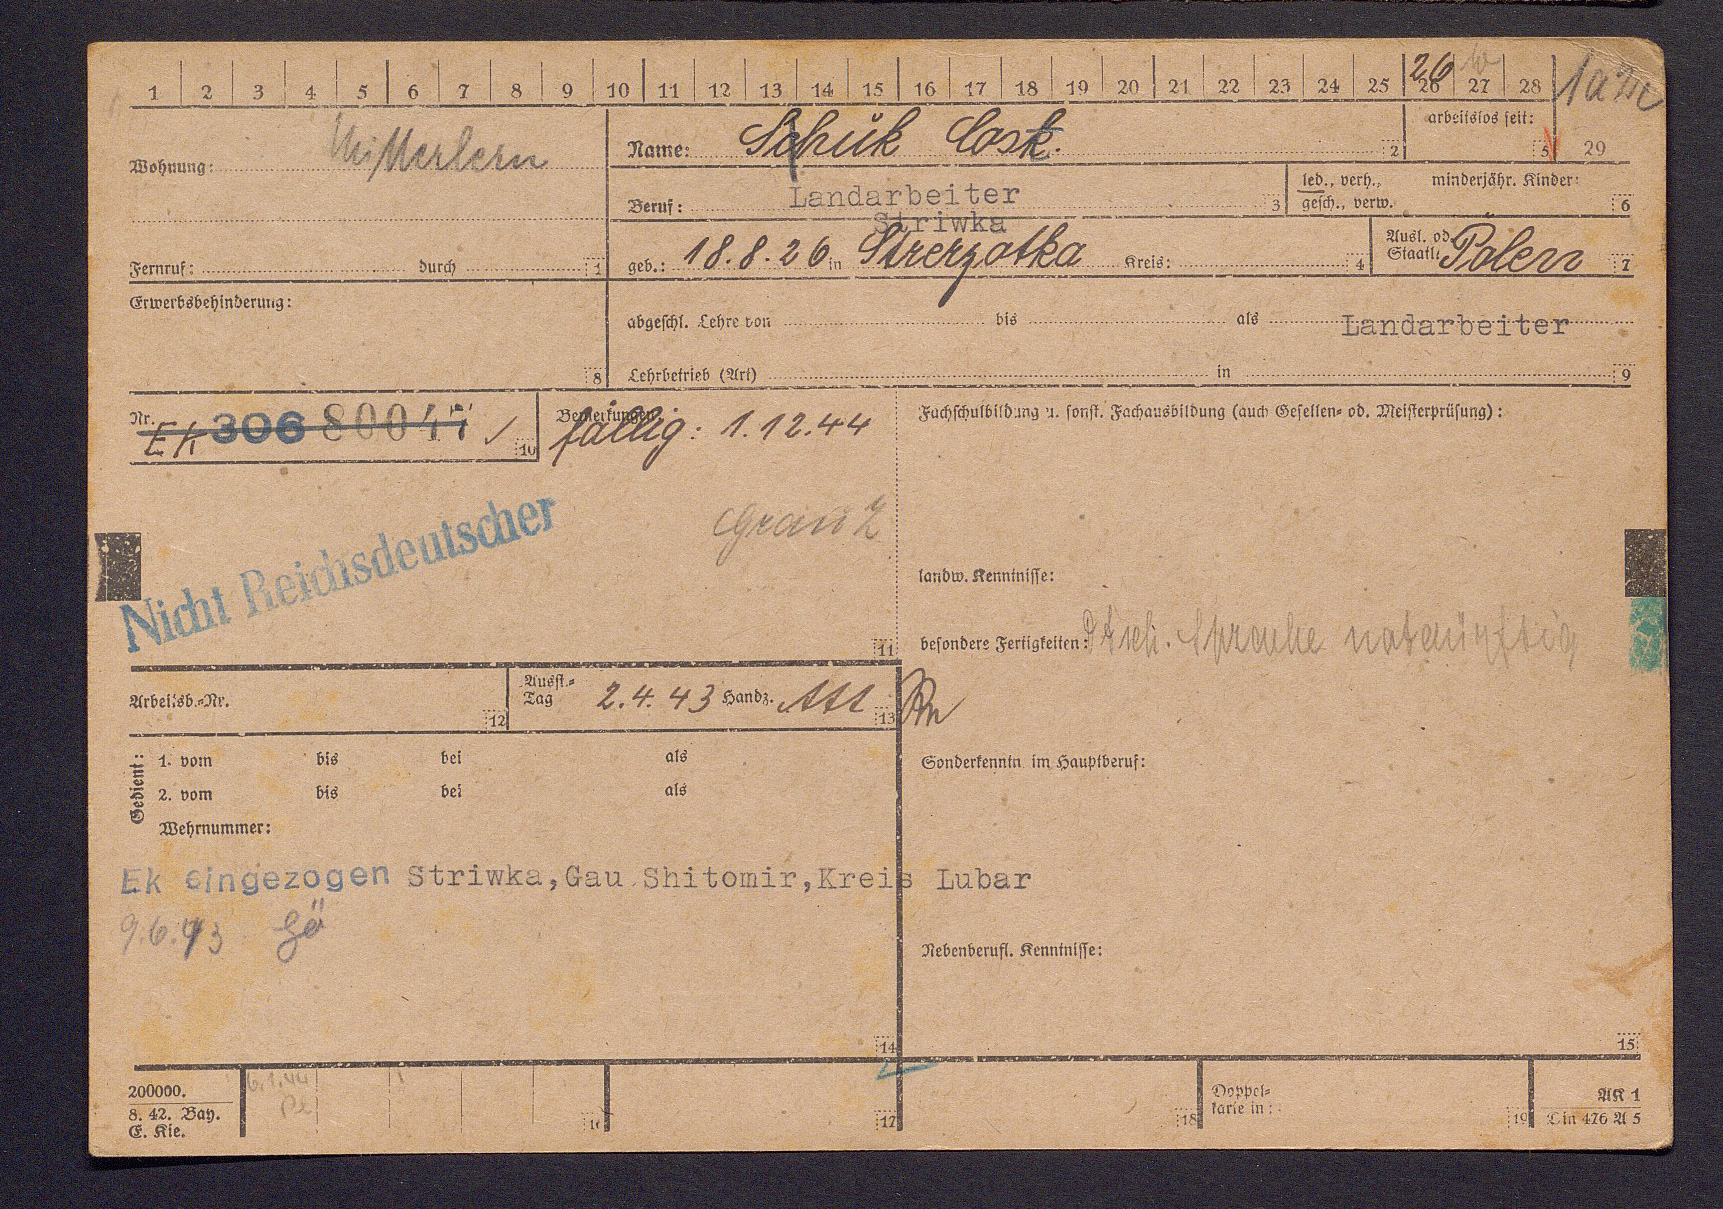 1 2 3 4 5 6 7 8 9 10 11 12 13 14 15 16 17 18 19 20 21 22 23 24 25 26 27 28
26
Wohnung: Mitterlern
Name: Schük Cosk. 2
arbeitslos seit: 5 29
Beruf: Landarbeiter 3
led., verh., gesch., verw. minderjähr. Kinder: 6
Striwka
Fernruf: durch 1
geb.: 18.8.26 in Strerzotka Kreis: 4
Ausl. od. Staatl: Polen 7
Erwerbsbehinderung: 8
abgeschl. Lehre von bis als Landarbeiter
Lehrbetrieb (Art) in 9
Nr. EK 306 80047 10
Bemerkungen fällig: 1.12.44
Fachschulbildung u. sonst. Fachausbildung (auch Gesellen- od. Meisterprüfung):
Nicht Reichsdeutscher
landw. Kenntnisse:
besondere Fertigkeiten: dtsch. Sprache notdürftig
11
Arbeitsb.-Nr. 12
Ausst.-Tag 2.4.43 Handz. 13
Gedient:
1. vom bis bei als
2. vom bis bei als
Wehrnummer:
Sonderkenntn im Hauptberuf:
Ek eingezogen Striwka, Gau Shitomir, Kreis Lubar
9.6.43 Gö
Nebenberufl. Kenntnisse:
14 15
200000.
8. 42. Bay.
E. Kie.
6.1.44
16 17 18
Doppel-
karte in: 19
AK 1
Din 476 A 5